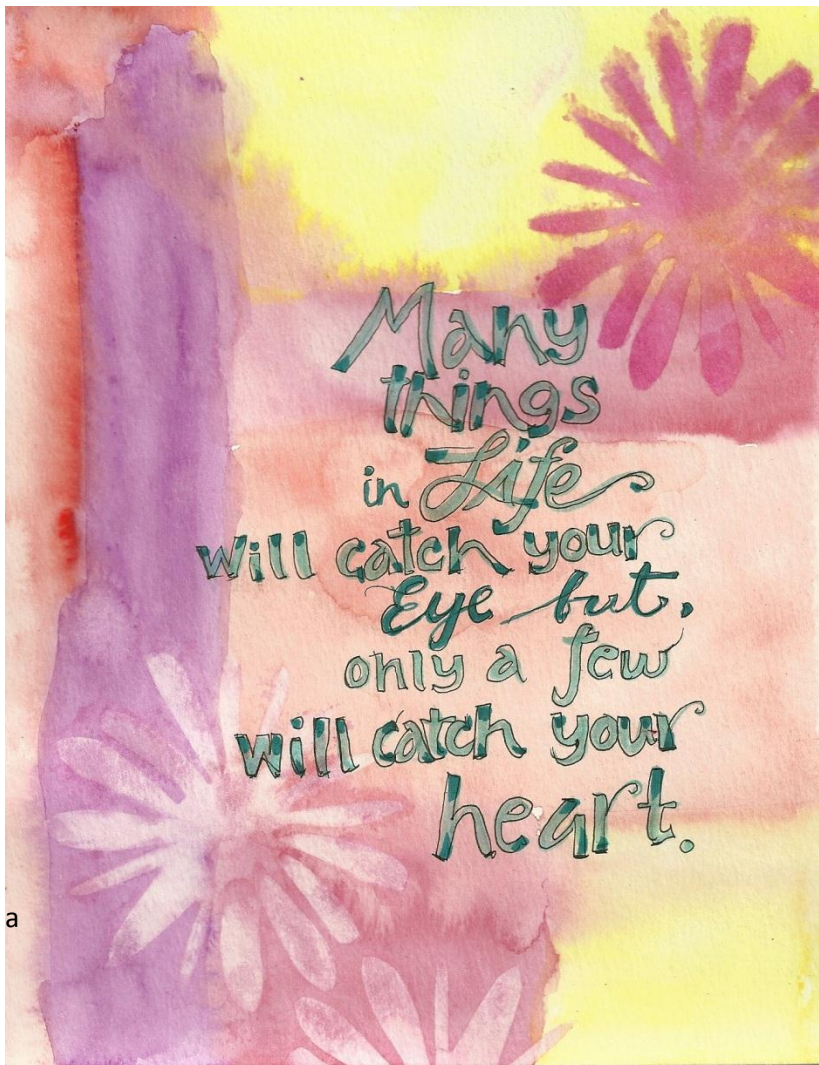 Many
things
in Life
will catch your
Eye but,
only a few
will catch your
heart.
a